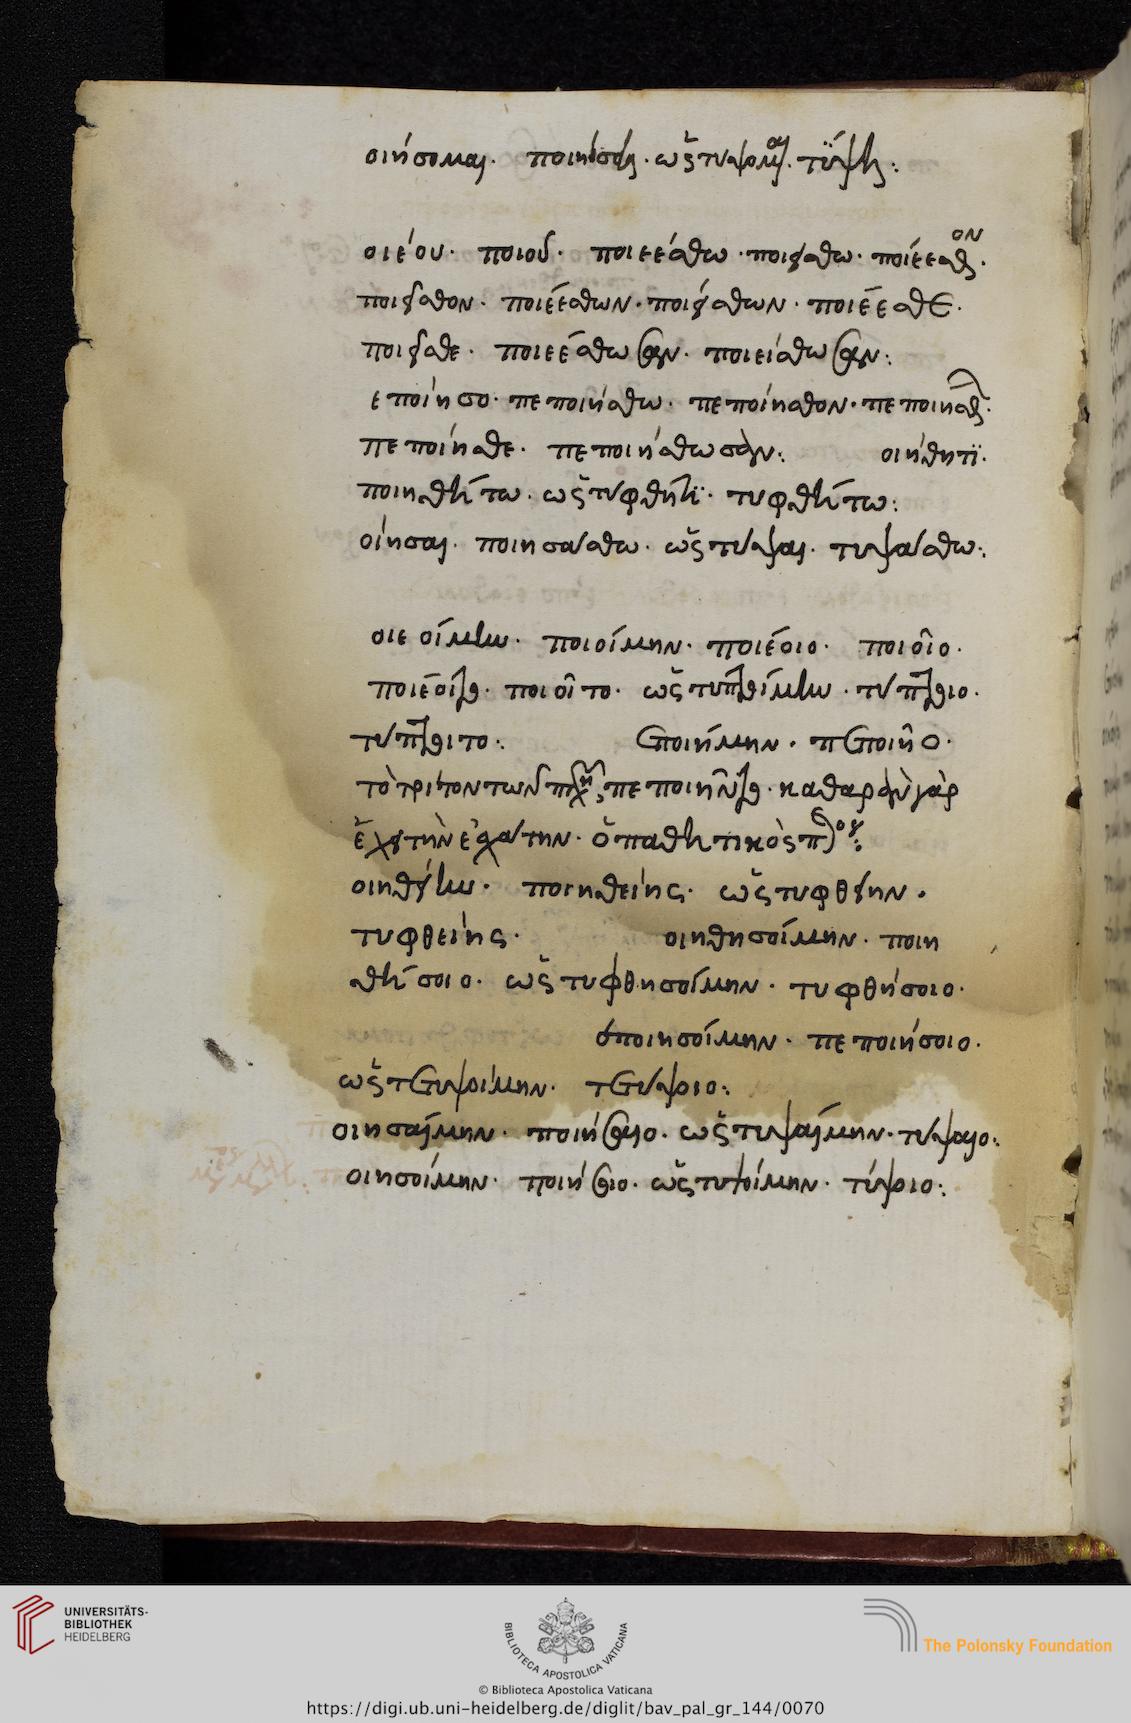 οιήσομαι. ποιήσῃ. ὡς τύψομαι. τύψῃ:
οιέου. ποιοῦ. ποιεέσθω. ποιείσθω. ποιέεσθον.
ποιεῖσθον. ποιεέσθων. ποιείσθων. ποιέεσθε.
ποιεῖσθε. ποιεέσθωσαν. ποιείσθωσαν:
εποίησο. πεποιήσθω. πεποίησθον. πεποιήσθων.
πεποίησθε. πεποιήσθωσαν: οιήθητϊ.
ποιηθήτω. ὡς τύφθητϊ. τυφθήτω:
οίησαι. ποιησάσθω. ὡς τύψαι. τυψάσθω:
οιεοίμην. ποιοίμην. ποιέοιο. ποιοῖο.
ποιέοιτο. ποιοῖτο. ὡς τυπτοίμην. τύπτοιο.
τύπτοιτο: εποιήμην. πεποιῆο.
τὸ τρίτον τῶν πεποιῆντο. καθαρὰν γὰρ
ἔχει τὴν ἐσχάτην. ὁ παθητικὸς
οιηθείην. ποιηθείης. ὡς τυφθείην.
τυφθείης. οιηθησοίμην. ποιη
θήσοιο. ὡς τυφθησοίμην. τυφθήσοιο.
εποιησοίμην. πεποιήσοιο.
ὡς τετυψοίμην. τετύψοιο:
οιησαίμην. ποιήσαιο. ὡς τυψαίμην. τύψαιο:
οιησοίμην. ποιήσοιο. ὡς τυψοίμην. τύψοιο:
UNIVERSITÄTS-
BIBLIOTHEK
HEIDELBERG
BIBLIOTECA APOSTOLICA VATICANA
The Polonsky Foundation
© Biblioteca Apostolica Vaticana
https://digi.ub.uni-heidelberg.de/diglit/bav_pal_gr_144/0070